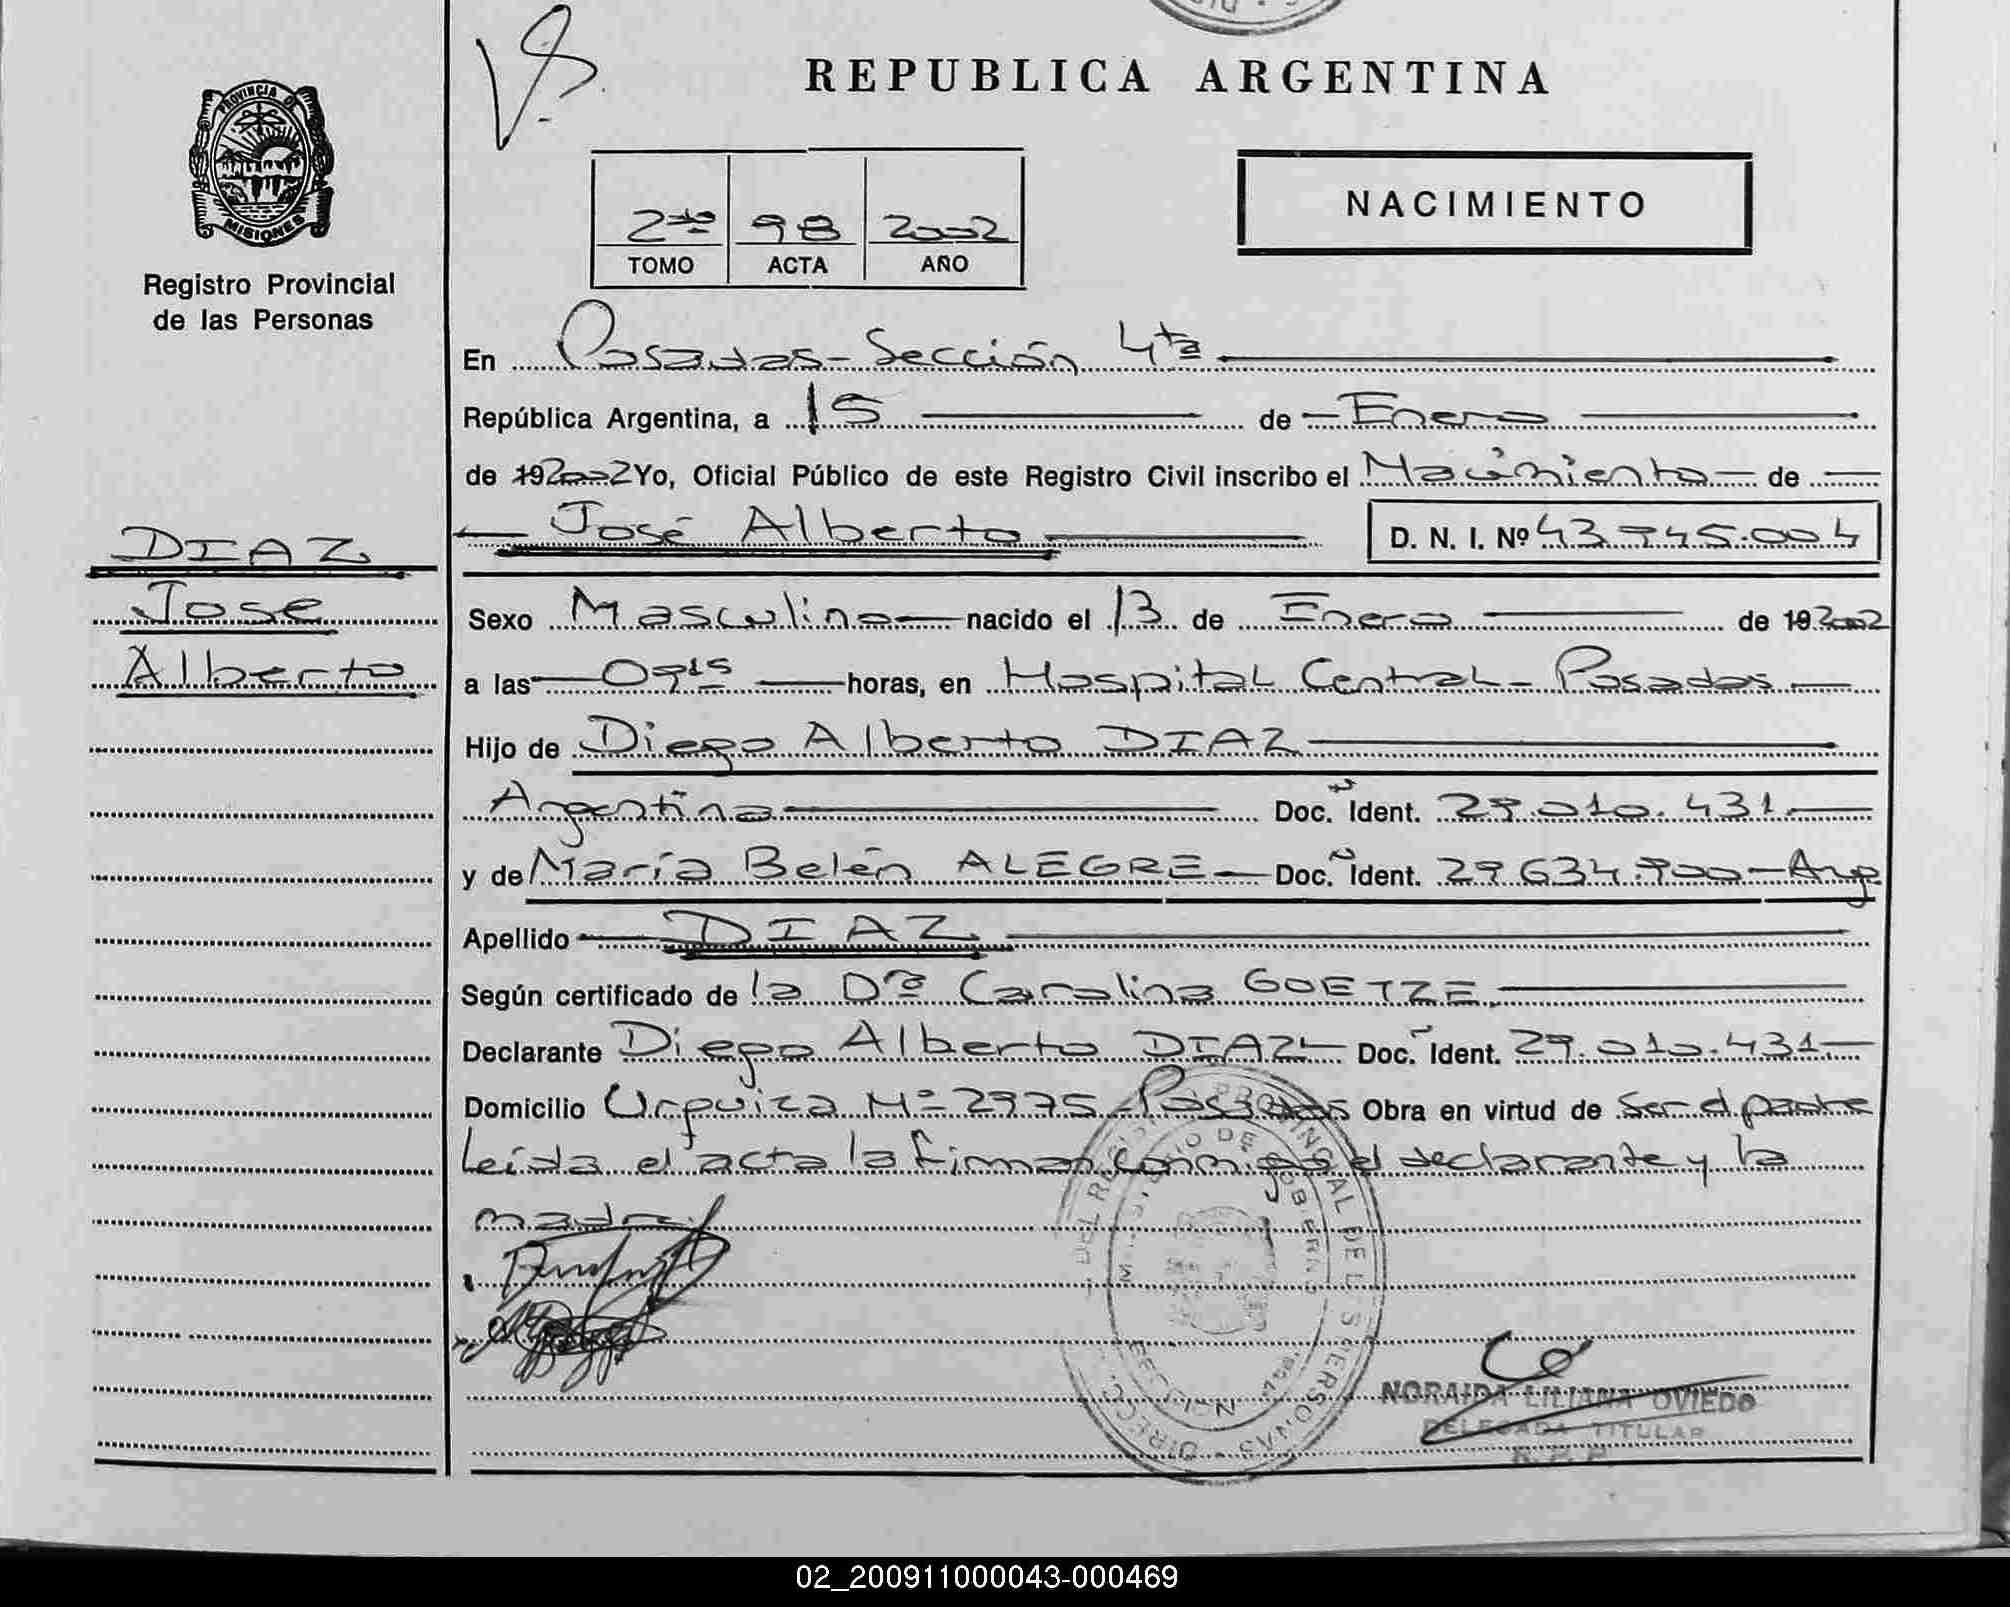 REPUBLICA ARGENTINA
PROVINCIA DE MISIONES
Registro Provincial
de las Personas
NACIMIENTO
2do 98 2002
TOMO ACTA AÑO
En Posadas - Sección 4ta
República Argentina, a 15 de Enero
de 192002 Yo, Oficial Público de este Registro Civil inscribo el Nacimiento de
José Alberto D. N. I. Nº 43.745.004
DIAZ
Jose
Alberto
Sexo Masculino nacido el 13 de Enero de 192002
a las 09 15 horas, en Hospital Central - Posadas
Hijo de Diego Alberto DIAZ
Argentina Doc. Ident. 29.010.431
y de María Belén ALEGRE Doc. Ident. 29.634.900 - Arg
Apellido DIAZ
Según certificado de la Dra Carolina GOETZE
Declarante Diego Alberto DIAZ Doc. Ident. 29.010.431
Domicilio Urquiza Nº 2975 - Posadas Obra en virtud de ser el padre
Leída el acta la firman conmigo el declarante y la
madre
NORAIDA LILIANA OVIEDO
DELEGADA TITULAR
R. P. P.
02_200911000043-000469